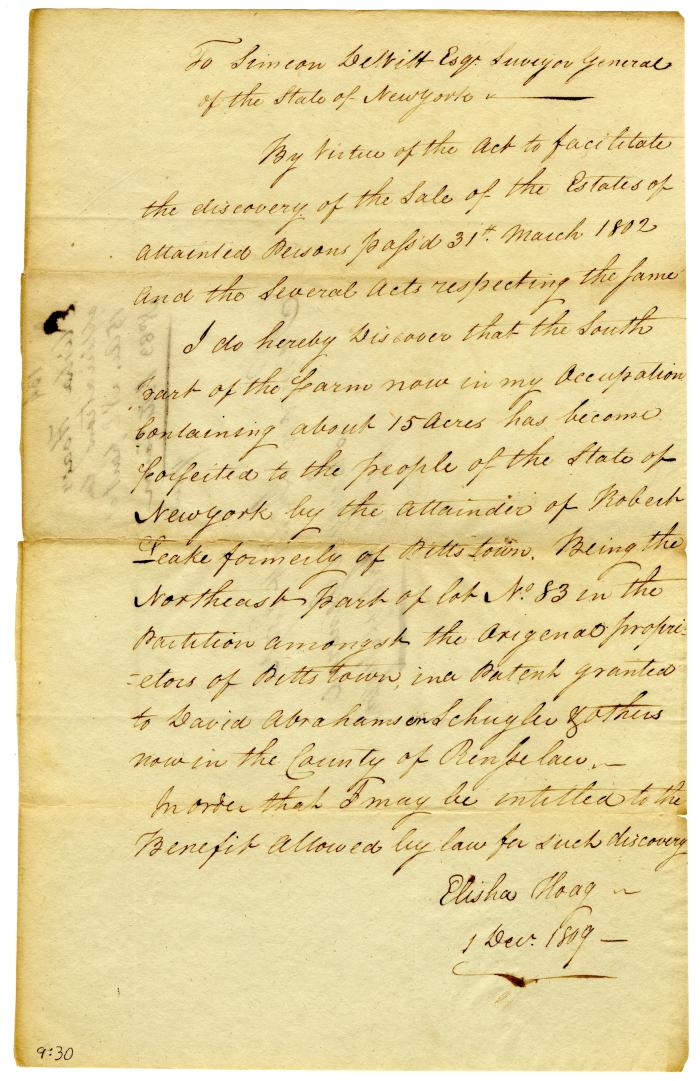 To Simeon DeWitt Esqr Suveyor General
of the State of Newyork
By Virtue of the Act to facilitate
the discovery of the Sale of the Estates of
Attainted Persons pass'd 31st March 1802
And the Several Acts respecting the same
I do hereby Discover that the South
part of the Farm now in my Occupation
Containing about 15 Acres has become
forfeited to the people of the State of
Newyork by the Attainder of Robert
Leake formerly of Pittstown. Being the
Northeast part of lot No. 83 in the
Partition amongst the Origenal propri=
=etors of Pittstown, in a Patent granted
to David Abrahamson Schuyler & others
now in the County of Rensselaer
In order that I may be entitled to the
Benefit Allowed by law for such discovery
Elisha Hoag
1 Decr. 1809
9:30